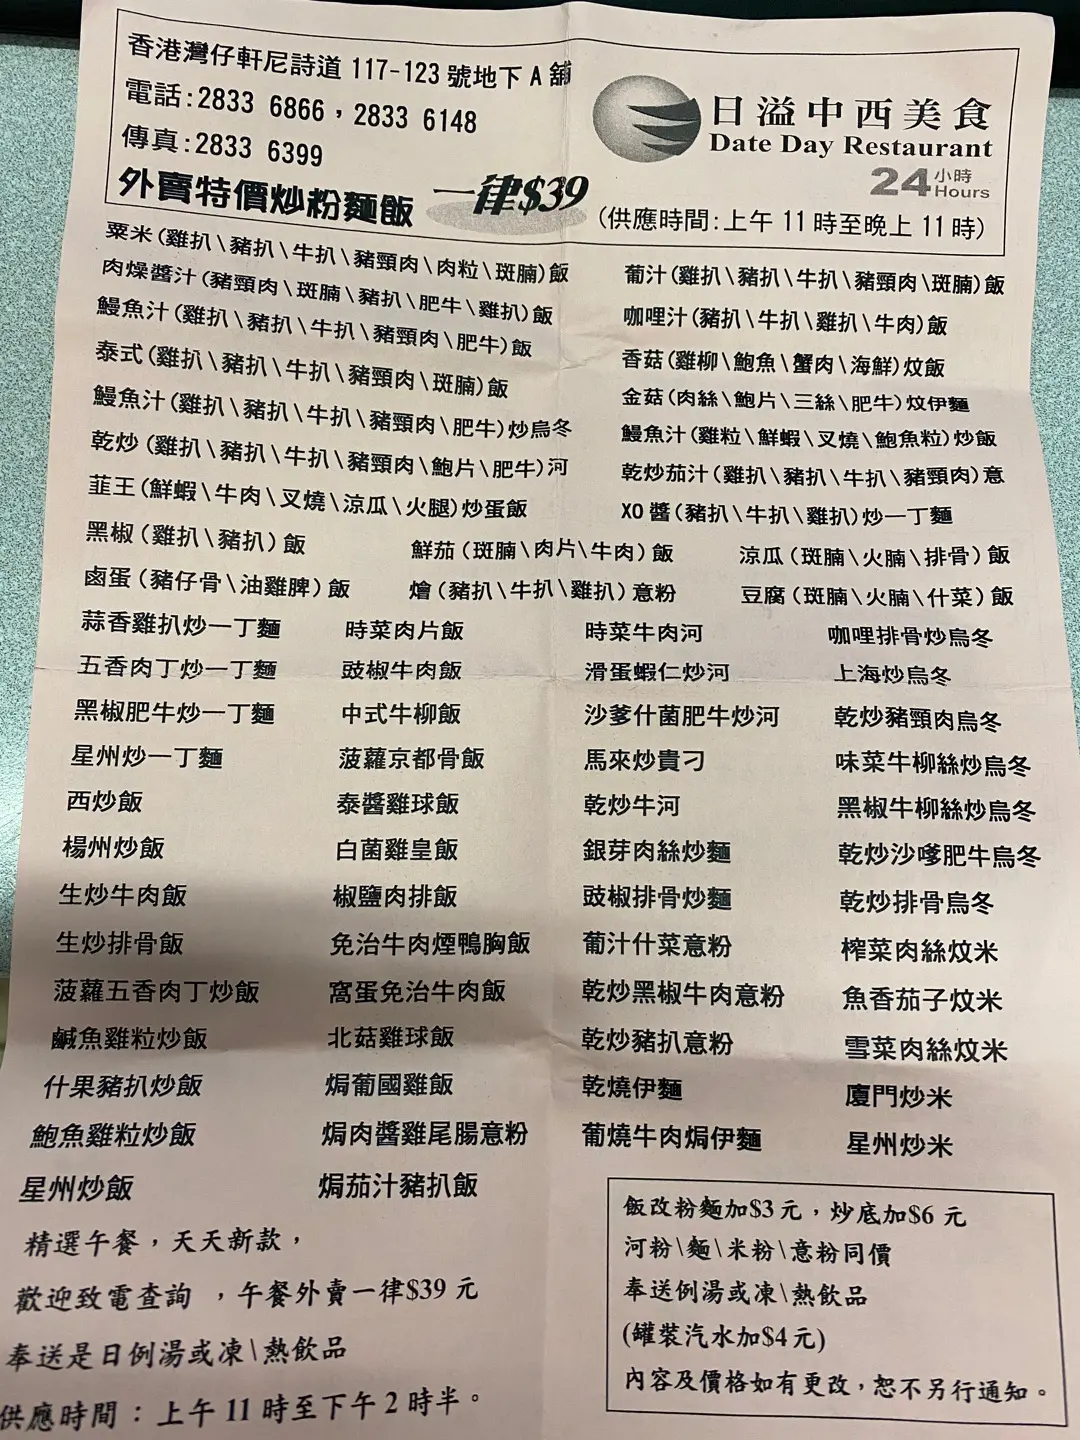 香港灣仔軒尼詩道 117-123 號地下 A 舖
電話:2833 6866，2833 6148
傳真:2833 6399
日溢中西美食
Date Day Restaurant
24小時
Hours
外賣特價炒粉麵飯 一律$39
(供應時間:上午 11 時至晚上 11 時)
粟米(雞扒\豬扒\牛扒\豬頸肉\肉粒\斑腩)飯
肉燥醬汁(豬頸肉\斑腩\豬扒\肥牛\雞扒)飯
鰻魚汁(雞扒\豬扒\牛扒\豬頸肉\肥牛)飯
泰式(雞扒\豬扒\牛扒\豬頸肉\斑腩)飯
鰻魚汁(雞扒\豬扒\牛扒\豬頸肉\肥牛)炒烏冬
乾炒(雞扒\豬扒\牛扒\豬頸肉\鮑片\肥牛)河
韮王(鮮蝦\牛肉\叉燒\涼瓜\火腿)炒蛋飯
葡汁(雞扒\豬扒\牛扒\豬頸肉\斑腩)飯
咖哩汁(豬扒\牛扒\雞扒\牛肉)飯
香菇(雞柳\鮑魚\蟹肉\海鮮)炆飯
金菇(肉絲\鮑片\三絲\肥牛)炆伊麵
鰻魚汁(雞粒\鮮蝦\叉燒\鮑魚粒)炒飯
乾炒茄汁(雞扒\豬扒\牛扒\豬頸肉)意
XO 醬(豬扒\牛扒\雞扒)炒一丁麵
黑椒(雞扒\豬扒)飯 鮮茄(斑腩\肉片\牛肉)飯 涼瓜(斑腩\火腩\排骨)飯
鹵蛋(豬仔骨\油雞脾)飯 燴(豬扒\牛扒\雞扒)意粉 豆腐(斑腩\火腩\什菜)飯
蒜香雞扒炒一丁麵 時菜肉片飯 時菜牛肉河 咖哩排骨炒烏冬
五香肉丁炒一丁麵 豉椒牛肉飯 滑蛋蝦仁炒河 上海炒烏冬
黑椒肥牛炒一丁麵 中式牛柳飯 沙爹什菌肥牛炒河 乾炒豬頸肉烏冬
星州炒一丁麵 菠蘿京都骨飯 馬來炒貴刁 味菜牛柳絲炒烏冬
西炒飯 泰醬雞球飯 乾炒牛河 黑椒牛柳絲炒烏冬
楊州炒飯 白菌雞皇飯 銀芽肉絲炒麵 乾炒沙嗲肥牛烏冬
生炒牛肉飯 椒鹽肉排飯 豉椒排骨炒麵 乾炒排骨烏冬
生炒排骨飯 免治牛肉煙鴨胸飯 葡汁什菜意粉 榨菜肉絲炆米
菠蘿五香肉丁炒飯 窩蛋免治牛肉飯 乾炒黑椒牛肉意粉 魚香茄子炆米
鹹魚雞粒炒飯 北菇雞球飯 乾炒豬扒意粉 雪菜肉絲炆米
什果豬扒炒飯 焗葡國雞飯 乾燒伊麵 廈門炒米
鮑魚雞粒炒飯 焗肉醬雞尾腸意粉 葡燒牛肉焗伊麵 星州炒米
星州炒飯 焗茄汁豬扒飯
精選午餐，天天新款，
歡迎致電查詢 ，午餐外賣一律$39 元
奉送是日例湯或凍\熱飲品
供應時間：上午 11 時至下午 2 時半。
飯改粉麵加$3 元，炒底加$6 元
河粉\麵\米粉\意粉同價
奉送例湯或凍\熱飲品
(罐裝汽水加$4 元)
內容及價格如有更改，恕不另行通知。